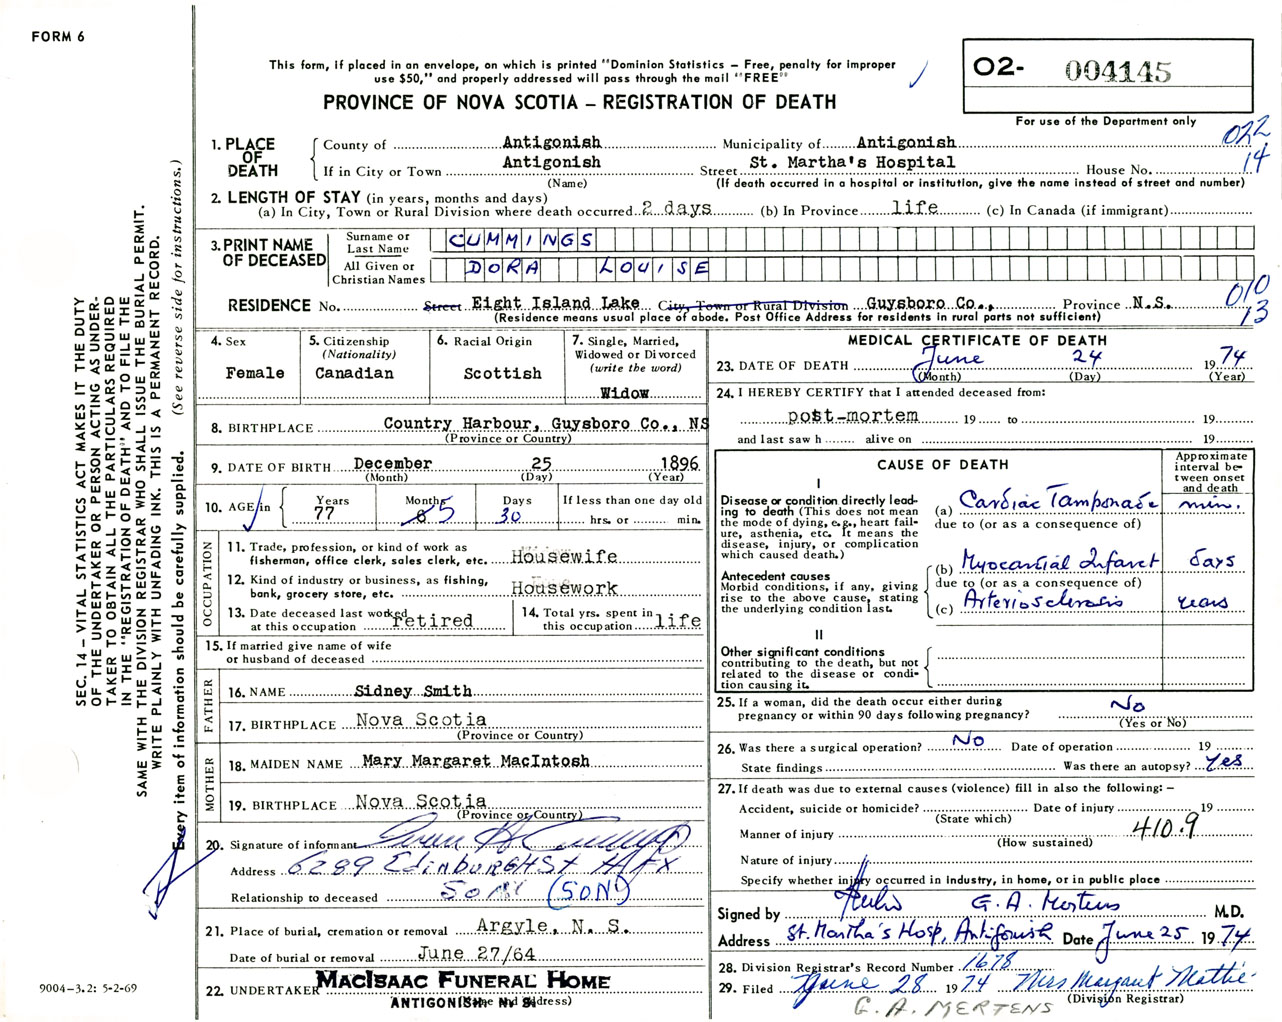 FORM 6
This form, if placed in an envelope, on which is printed "Dominion Statistics – Free, penalty for improper
use $50," and properly addressed will pass through the mail "FREE"
PROVINCE OF NOVA SCOTIA – REGISTRATION OF DEATH
O2- 004145
For use of the Department only
022
14
1. PLACE OF DEATH
County of Antigonish Municipality of Antigonish
If in City or Town Antigonish Street St. Martha's Hospital House No.
(Name) (If death occurred in a hospital or institution, give the name instead of street and number)
2. LENGTH OF STAY (in years, months and days)
(a) In City, Town or Rural Division where death occurred 2 days (b) In Province life (c) In Canada (if immigrant)
3. PRINT NAME OF DECEASED
Surname or Last Name CUMMINGS
All Given or Christian Names DORA LOUISE
RESIDENCE No. Street Eight Island Lake City, Town or Rural Division Guysboro Co., Province N.S.
(Residence means usual place of abode. Post Office Address for residents in rural parts not sufficient)
010
13
4. Sex
Female
5. Citizenship
(Nationality)
Canadian
6. Racial Origin
Scottish
7. Single, Married,
Widowed or Divorced
(write the word)
Widow
8. BIRTHPLACE Country Harbour, Guysboro Co., NS
(Province or Country)
9. DATE OF BIRTH December 25 1896
(Month) (Day) (Year)
10. AGE in Years 77 Months 6 5 Days 30
If less than one day old
hrs. or min.
OCCUPATION
11. Trade, profession, or kind of work as
fisherman, office clerk, sales clerk, etc. Housewife
12. Kind of industry or business, as fishing,
bank, grocery store, etc. Housework
13. Date deceased last worked
at this occupation retired
14. Total yrs. spent in
this occupation life
15. If married give name of wife
or husband of deceased
FATHER
16. NAME Sidney Smith
17. BIRTHPLACE Nova Scotia
(Province or Country)
MOTHER
18. MAIDEN NAME Mary Margaret MacIntosh
19. BIRTHPLACE Nova Scotia
(Province or Country)
20. Signature of informant
Address 6289 EdinBURGH St HFX
Relationship to deceased SON (SON)
21. Place of burial, cremation or removal Argyle, N. S.
Date of burial or removal June 27/64
22. UNDERTAKER MACISAAC FUNERAL HOME
ANTIGONISH, N. S.
(Name and Address)
MEDICAL CERTIFICATE OF DEATH
23. DATE OF DEATH June 24 1974
(Month) (Day) (Year)
24. I HEREBY CERTIFY that I attended deceased from:
post-mortem 19 to 19
and last saw h alive on 19
CAUSE OF DEATH
Approximate
interval be-
tween onset
and death
I
Disease or condition directly lead-
ing to death (This does not
mean the mode of dying, e.g., heart fail-
ure, asthenia, etc. It means the
disease, injury, or complication
which caused death.)
(a) Cardiac Tamponade min.
due to (or as a consequence of)
Antecedent causes
Morbid conditions, if any, giving
rise to the above cause, stating
the underlying condition last.
(b) Myocardial Infarct days
due to (or as a consequence of)
(c) Arteriosclerosis years
II
Other significant conditions
contributing to the death, but not
related to the disease or condi-
tion causing it.
25. If a woman, did the death occur either during
pregnancy or within 90 days following pregnancy? No
(Yes or No)
26. Was there a surgical operation? No Date of operation 19
State findings Was there an autopsy? Yes
27. If death was due to external causes (violence) fill in also the following: –
Accident, suicide or homicide? Date of injury 19
(State which)
Manner of injury 410.9
(How sustained)
Nature of injury
Specify whether injury occurred in industry, in home, or in public place
Signed by G. A. Mertens M.D.
Address St. Martha's Hosp, Antigonish Date June 25 1974
28. Division Registrar's Record Number 1678
29. Filed June 28 1974 Miss Margaret Mattie
(Division Registrar)
G. A. MERTENS
SEC. 14 – VITAL STATISTICS ACT MAKES IT THE DUTY
OF THE UNDERTAKER OR PERSON ACTING AS UNDER-
TAKER TO OBTAIN ALL THE PARTICULARS REQUIRED
IN THE "REGISTRATION OF DEATH" AND TO FILE THE
SAME WITH THE DIVISION REGISTRAR WHO SHALL ISSUE THE BURIAL PERMIT.
WRITE PLAINLY WITH UNFADING INK. THIS IS A PERMANENT RECORD.
Every item of information should be carefully supplied. (See reverse side for instructions.)
9004-3.2: 5-2-69